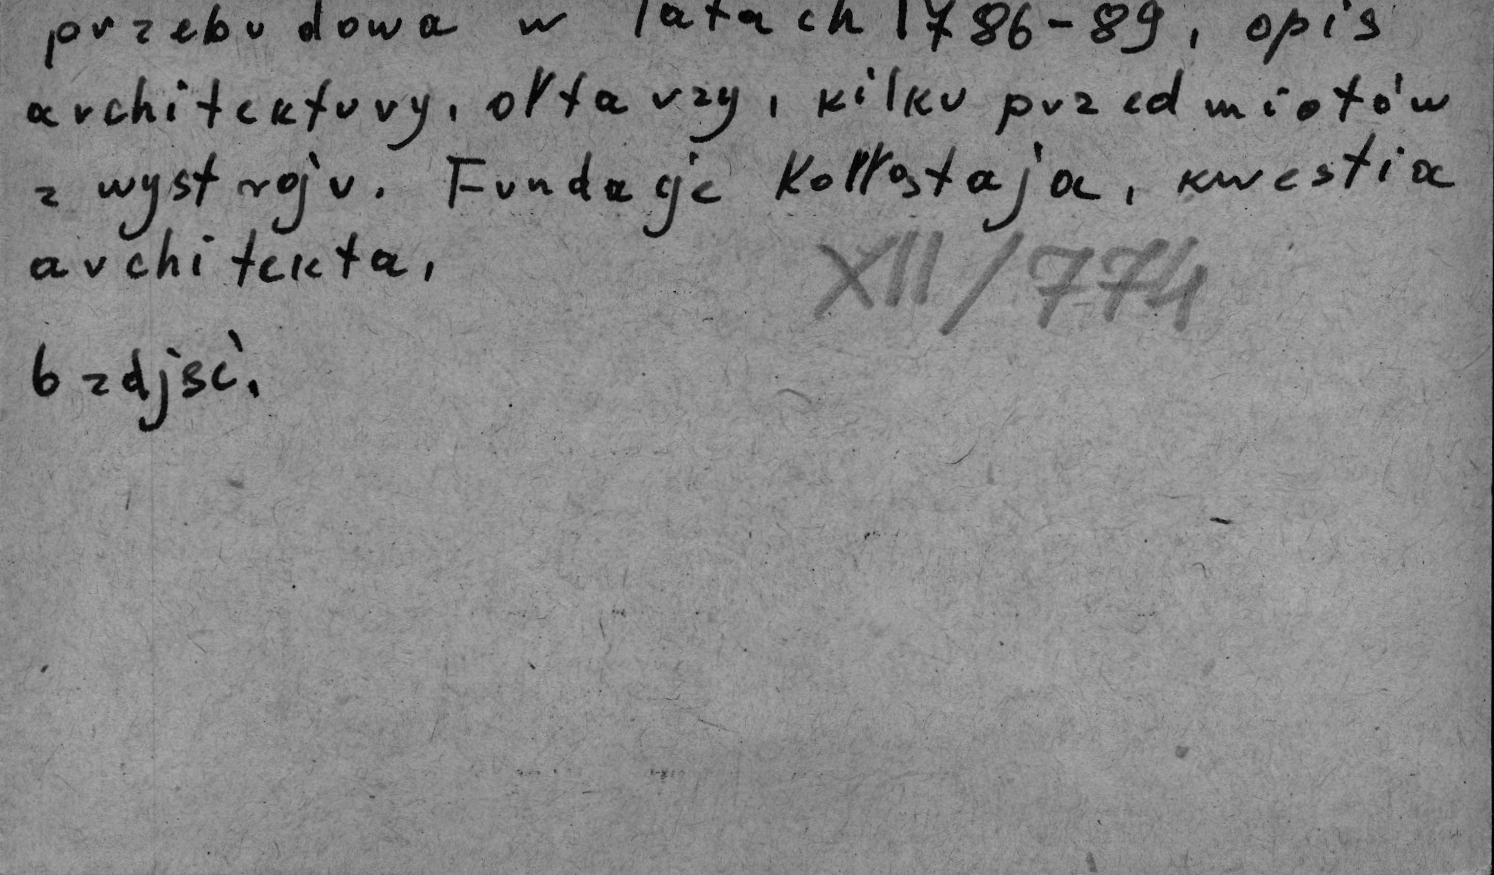 przebudowa w latach 1786-89, opis
architektury, ołtarzy, kilku przedmiotów
z wystroju. Fundacje Kołłątaja, kwestia
architekta,
XII/774
6 zdjęć.